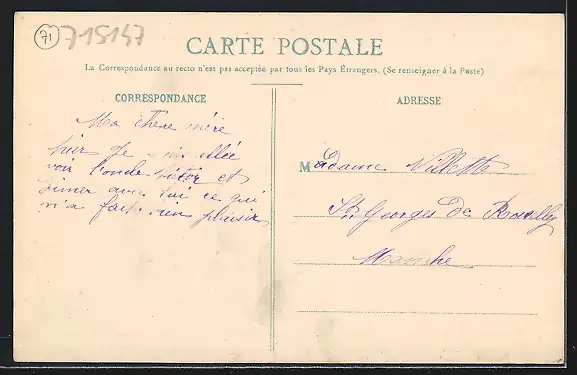 71
715147
CARTE POSTALE
La Correspondance au recto n'est pas acceptée par tous les Pays Étrangers. (Se renseigner à la Poste)
CORRESPONDANCE
ADRESSE
Ma chère mère
hier je suis allée
voir l'oncle Victor et
diner avec lui ce qui
m'a fait bien plaisir
Madame Villette
St Georges De Rouelley
Manche